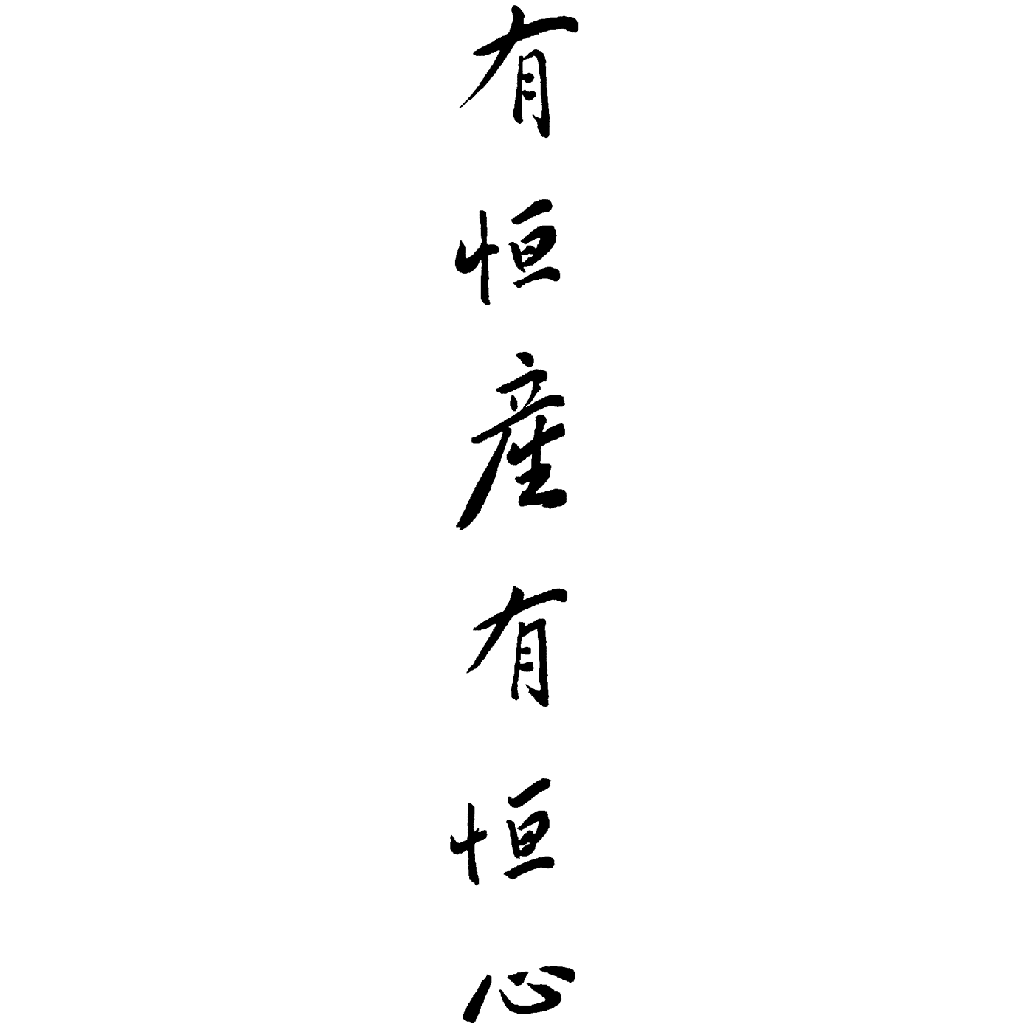 有恒産有恒心